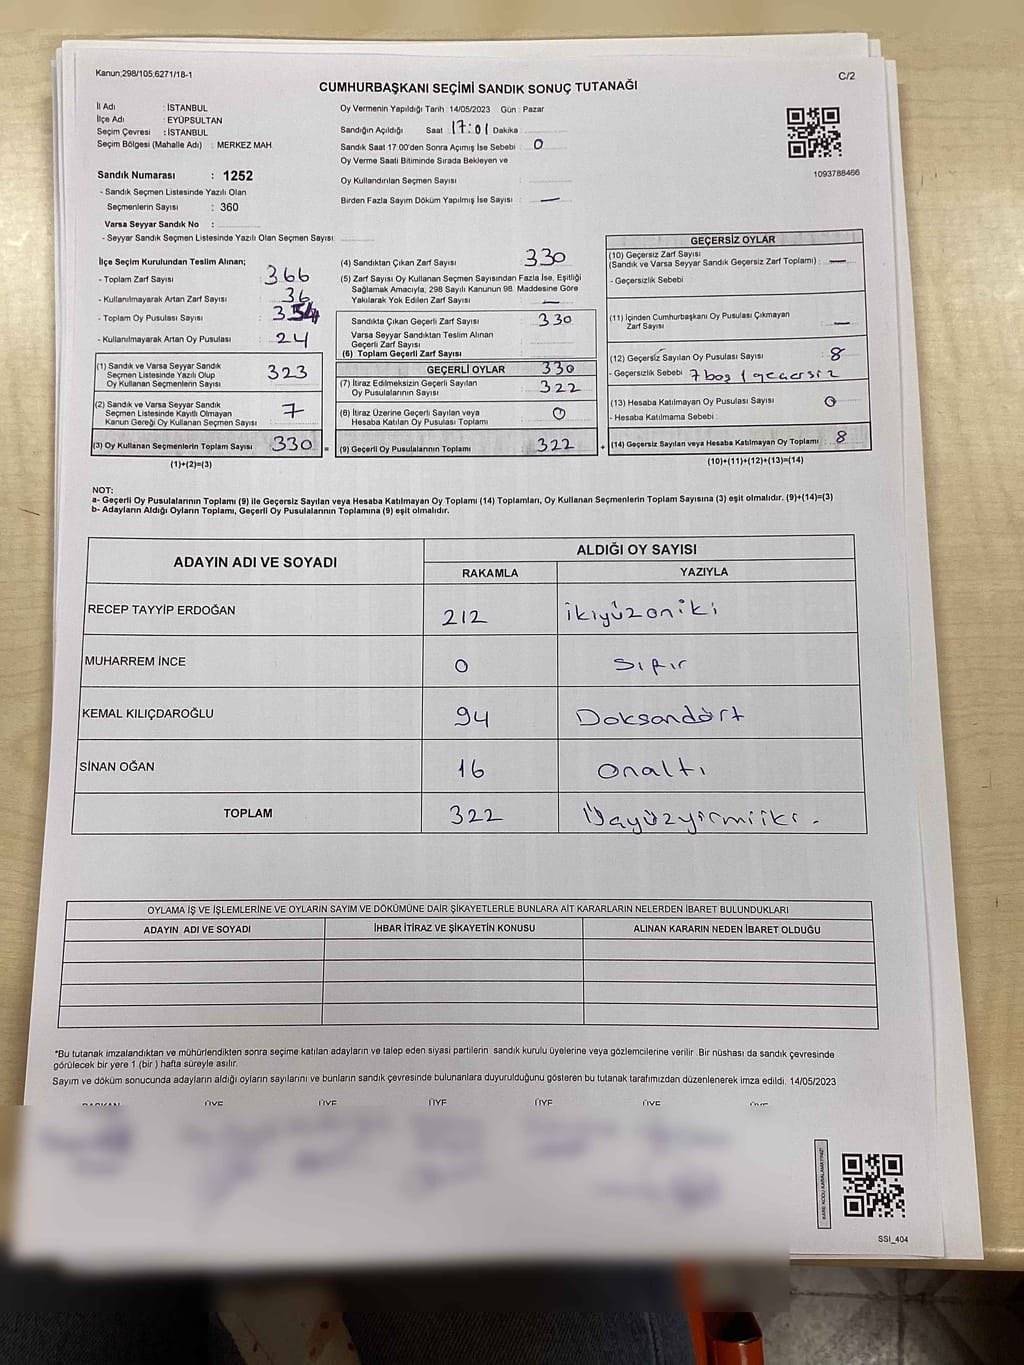 Kanun;298/105;6271/18-1
C/2
CUMHURBAŞKANI SEÇİMİ SANDIK SONUÇ TUTANAĞI
İl Adı : İSTANBUL
İlçe Adı : EYÜPSULTAN
Seçim Çevresi : İSTANBUL
Seçim Bölgesi (Mahalle Adı) : MERKEZ MAH.
Sandık Numarası : 1252
- Sandık Seçmen Listesinde Yazılı Olan
Seçmenlerin Sayısı : 360
Varsa Seyyar Sandık No :
- Seyyar Sandık Seçmen Listesinde Yazılı Olan Seçmen Sayısı
Oy Vermenin Yapıldığı Tarih 14/05/2023 Gün : Pazar
Sandığın Açıldığı Saat 17:01 Dakika
Sandık Saat 17:00'den Sonra Açımış İse Sebebi : 0
Oy Verme Saati Bitiminde Sırada Bekleyen ve
Oy Kullandırılan Seçmen Sayısı :
Birden Fazla Sayım Döküm Yapılmış İse Sayısı : —
1093788466
İlçe Seçim Kurulundan Teslim Alınan;
- Toplam Zarf Sayısı : 366
- Kullanılmayarak Artan Zarf Sayısı : 36
- Toplam Oy Pusulası Sayısı
- Kullanılmayarak Artan Oy Pusulası : 24
(1) Sandık ve Varsa Seyyar Sandık
Seçmen Listesinde Yazılı Olup
Oy Kullanan Seçmenlerin Sayısı : 323
(2) Sandık ve Varsa Seyyar Sandık
Seçmen Listesinde Kayıtlı Olmayan
Kanun Gereği Oy Kullanan Seçmen Sayısı : 7
(3) Oy Kullanan Seçmenlerin Toplam Sayısı : 330
(1)+(2)=(3)
(4) Sandıktan Çıkan Zarf Sayısı : 330
(5) Zarf Sayısı Oy Kullanan Seçmen Sayısından Fazla İse, Eşitliği
Sağlamak Amacıyla, 298 Sayılı Kanunun 98. Maddesine Göre
Yakılarak Yok Edilen Zarf Sayısı : —
Sandıkta Çıkan Geçerli Zarf Sayısı : 330
Varsa Seyyar Sandıktan Teslim Alınan
Geçerli Zarf Sayısı
(6) Toplam Geçerli Zarf Sayısı : 330
GEÇERLİ OYLAR
(7) İtiraz Edilmeksizin Geçerli Sayılan
Oy Pusulalarının Sayısı : 322
(8) İtiraz Üzerine Geçerli Sayılan veya
Hesaba Katılan Oy Pusulası Toplamı : 0
(9) Geçerli Oy Pusulalarının Toplamı : 322
GEÇERSİZ OYLAR
(10) Geçersiz Zarf Sayısı
(Sandık ve Varsa Seyyar Sandık Geçersiz Zarf Toplamı) : —
- Geçersizlik Sebebi
(11) İçinden Cumhurbaşkanı Oy Pusulası Çıkmayan
Zarf Sayısı : —
(12) Geçersiz Sayılan Oy Pusulası Sayısı : 8
- Geçersizlik Sebebi 7 boş 1 geçersiz
(13) Hesaba Katılmayan Oy Pusulası Sayısı : 0
- Hesaba Katılmama Sebebi :
(14) Geçersiz Sayılan veya Hesaba Katılmayan Oy Toplamı : 8
(10)+(11)+(12)+(13)=(14)
NOT:
a- Geçerli Oy Pusulalarının Toplamı (9) ile Geçersiz Sayılan veya Hesaba Katılmayan Oy Toplamı (14) Toplamları, Oy Kullanan Seçmenlerin Toplam Sayısına (3) eşit olmalıdır. (9)+(14)=(3)
b- Adayların Aldığı Oyların Toplamı, Geçerli Oy Pusulalarının Toplamına (9) eşit olmalıdır.
ADAYIN ADI VE SOYADI
ALDIĞI OY SAYISI
RAKAMLA YAZIYLA
RECEP TAYYİP ERDOĞAN 212 ikiyüzoniki
MUHARREM İNCE 0 Sıfır
KEMAL KILIÇDAROĞLU 94 Doksandört
SİNAN OĞAN 16 Onaltı
TOPLAM 322 Üçyüzyirmiiki.
OYLAMA İŞ VE İŞLEMLERİNE VE OYLARIN SAYIM VE DÖKÜMÜNE DAİR ŞİKAYETLERLE BUNLARA AİT KARARLARIN NELERDEN İBARET BULUNDUKLARI
ADAYIN ADI VE SOYADI İHBAR İTİRAZ VE ŞİKAYETİN KONUSU ALINAN KARARIN NEDEN İBARET OLDUĞU
*Bu tutanak imzalandıktan ve mühürlendikten sonra seçime katılan adayların ve talep eden siyasi partilerin sandık kurulu üyelerine veya gözlemcilerine verilir. Bir nüshası da sandık çevresinde
görülecek bir yere 1 (bir ) hafta süreyle asılır.
Sayım ve döküm sonucunda adayların aldığı oyların sayılarını ve bunların sandık çevresinde bulunanlara duyurulduğunu gösteren bu tutanak tarafımızdan düzenlenerek imza edildi. 14/05/2023
BAŞKAN ÜYE ÜYE ÜYE ÜYE ÜYE ÜYE
SSI_404